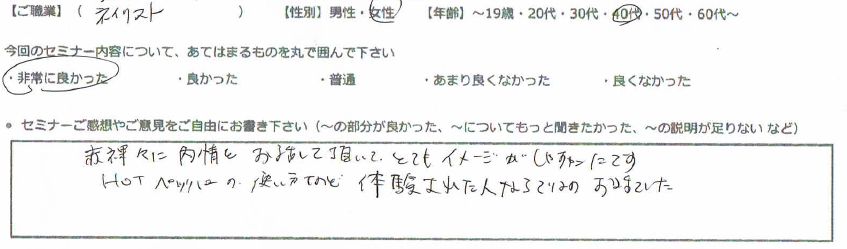 【ご職業】( ネイリスト ) 【性別】男性・女性 【年齢】~19歳・20代・30代・40代・50代・60代~
今回のセミナー内容について、あてはまるものを丸で囲んで下さい
・非常に良かった ・良かった ・普通 ・あまり良くなかった ・良くなかった
● セミナーご感想やご意見をご自由にお書き下さい(~の部分が良かった、~についてもっと聞きたかった、~の説明が足りない など)
々に内情をお話して頂いて、とてもイメージが です
HOTペッパーの使い方など 体験された人ならではの